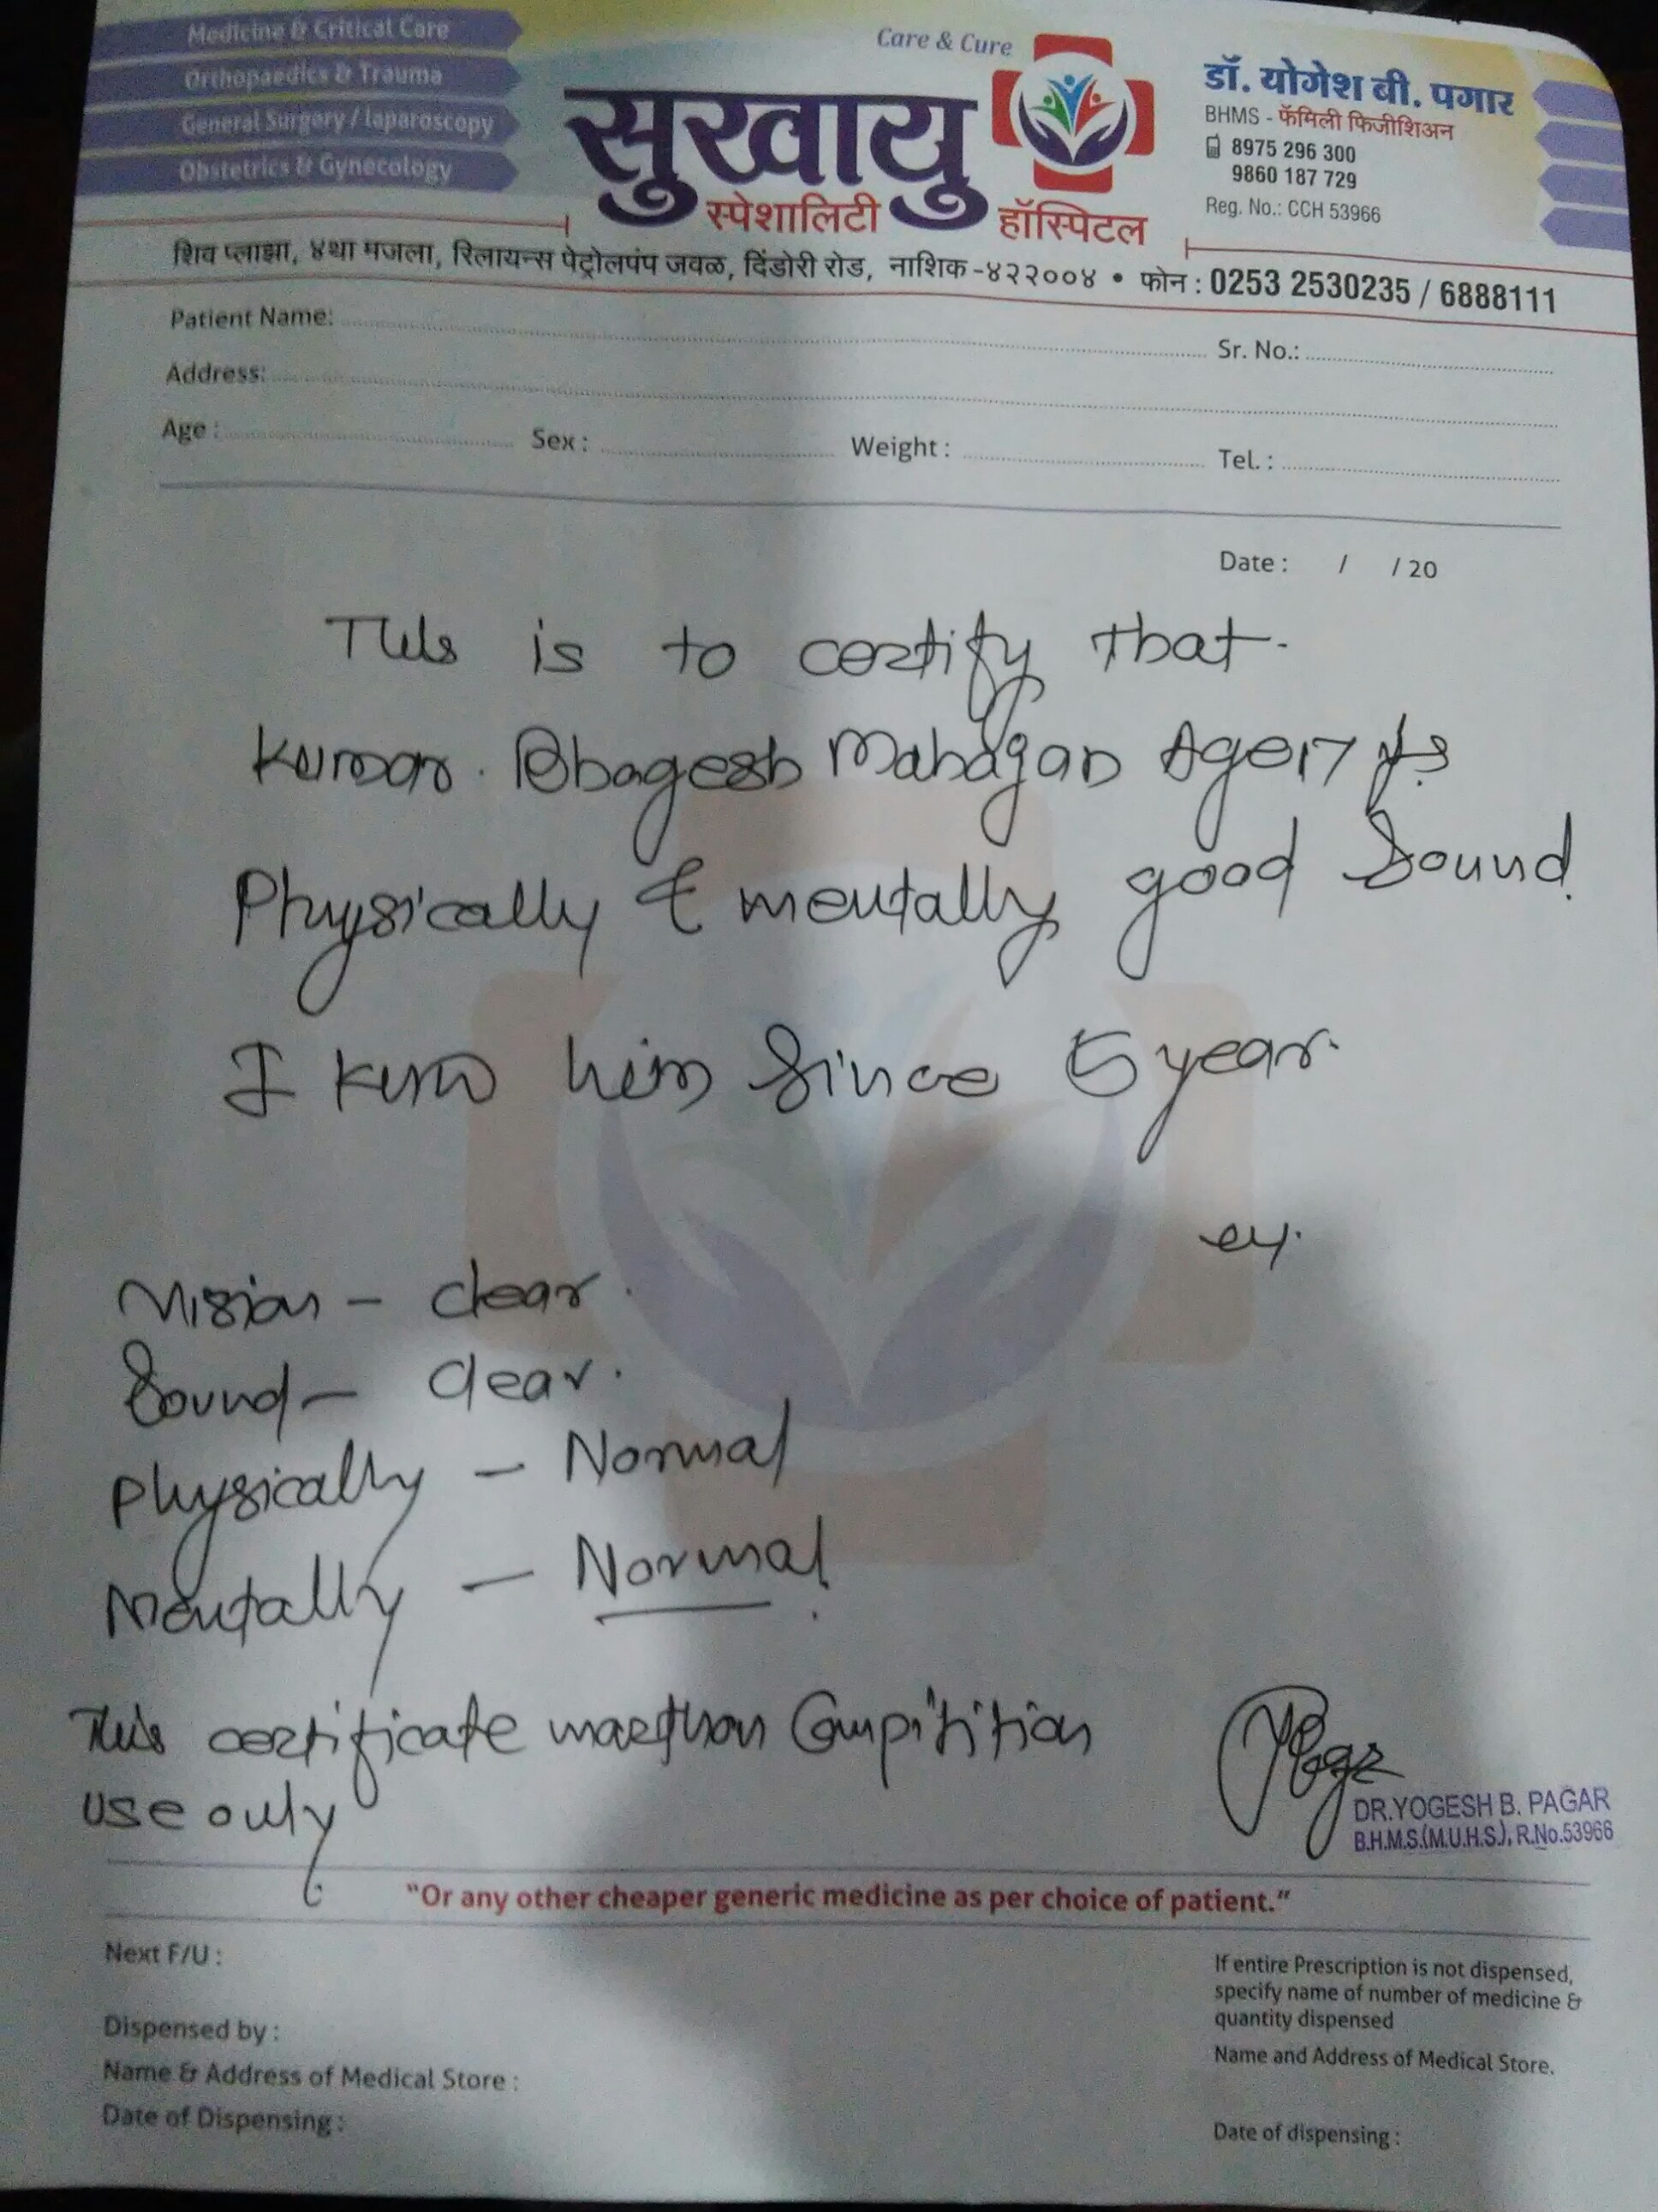 Medicine & Critical Care
Orthopaedics & Trauma
General Surgery / laparoscopy
Obstetrics & Gynecology
Care & Cure
सुखायु
स्पेशालिटी हॉस्पिटल
डॉ. योगेश बी. पगार
BHMS - फॅमिली फिजीशिअन
8975 296 300
9860 187 729
Reg. No.: CCH 53966
शिव प्लाझा, ४था मजला, रिलायन्स पेट्रोलपंप जवळ, दिंडोरी रोड, नाशिक -४२२००४ • फोन : 0253 2530235 / 6888111
Patient Name:
Sr. No.:
Address:
Age : Sex : Weight : Tel. :
Date : / / 20
This is to certify that
Kumar. Bhagesh Mahajan Age 17 yrs
Physically & mentally good sound.
I know him since 5 year.
Vision - clear.
Sound - clear.
Physically - Normal
Mentally - Normal.
This certificate marthon Compitition
use only
DR.YOGESH B. PAGAR
B.H.M.S.(M.U.H.S.), R.No.53966
"Or any other cheaper generic medicine as per choice of patient."
Next F/U :
Dispensed by :
Name & Address of Medical Store :
Date of Dispensing :
If entire Prescription is not dispensed,
specify name of number of medicine &
quantity dispensed
Name and Address of Medical Store.
Date of dispensing :